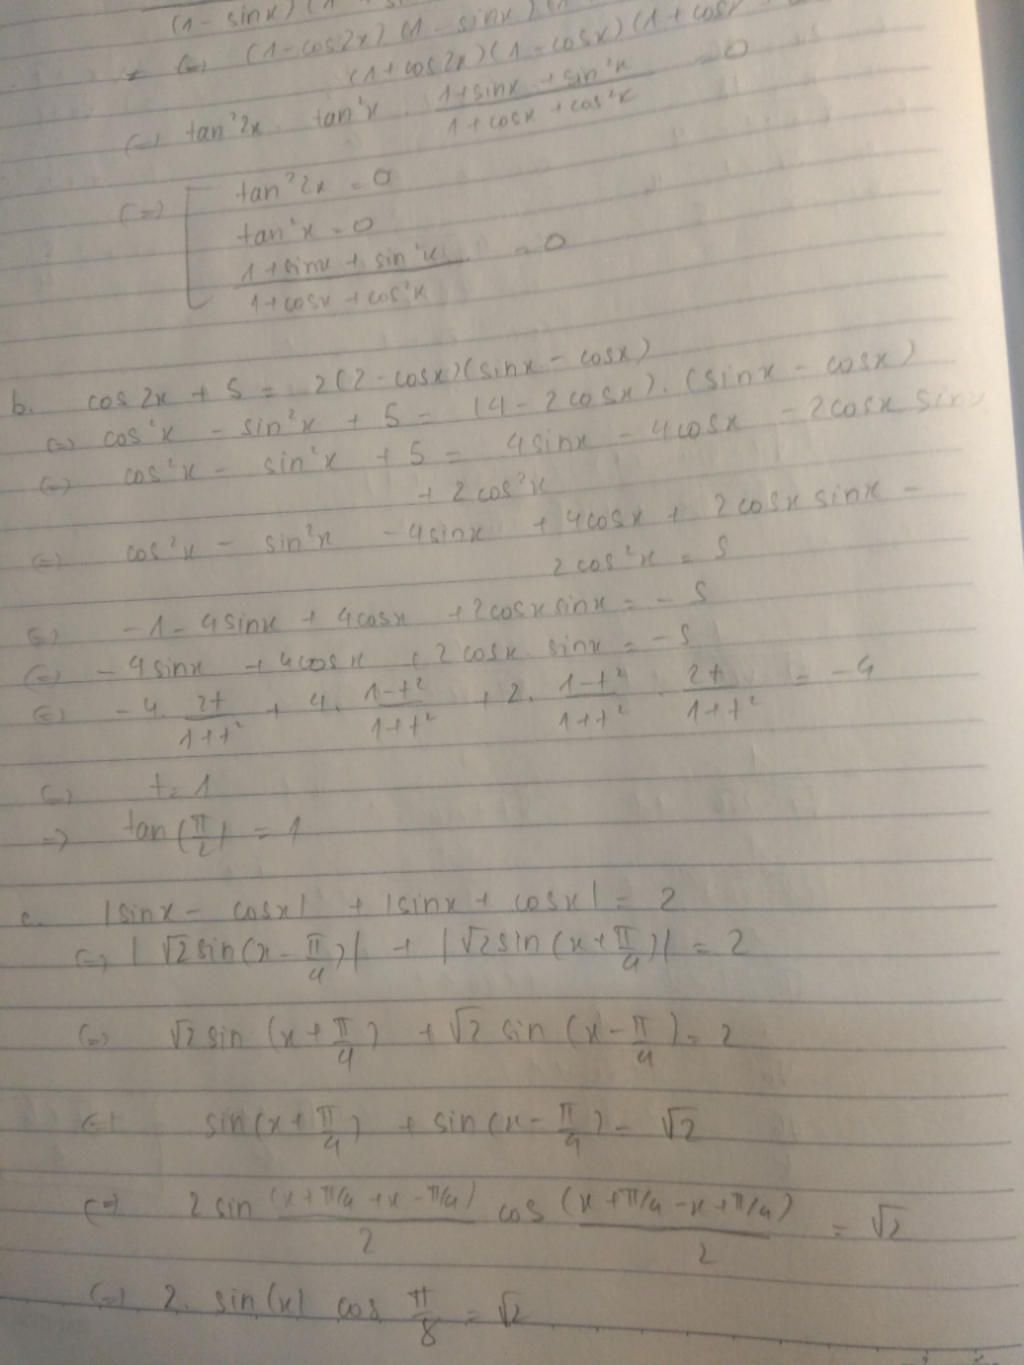 (1 - sinx) (1
(=) (1-cos2x) (1 - sinx)
(1+cos2x)(1-cosx)(1+cosx
(=) tan²2x . tan²x . \frac{1+sinx+sin²x}{1+cosx+cos²x} = 0
(=) [ tan²2x = 0
tan²x = 0
\frac{1+sinx+sin²x}{1+cosx+cos²x} = 0
b. cos2x + 5 = 2(2-cosx)(sinx - cosx)
(=) cos²x - sin²x + 5 = (4 - 2cosx).(sinx - cosx)
(=) cos²x - sin²x + 5 = 4sinx - 4cosx - 2cosx sinx
+ 2cos²x
(=) cos²x - sin²x - 4sinx + 4cosx + 2cosx sinx -
2cos²x = 5
(=) -1 - 4sinx + 4cosx + 2cosxsinx = -5
(=) -4sinx + 4cosx + 2cosx sinx = -5
(=) -4. \frac{2t}{1+t²} + 4. \frac{1-t²}{1+t²} + 2. \frac{1-t²}{1+t²} . \frac{2t}{1+t²} = -4
(=) t = 1
=> tan(\frac{π}{2}) = 1
c. |sinx - cosx| + |sinx + cosx| = 2
(=) |√2sin(x - \frac{π}{4})| + |√2sin(x + \frac{π}{4})| = 2
(=) √2sin (x + \frac{π}{4}) + √2 sin (x - \frac{π}{4}) = 2
(=) sin(x + \frac{π}{4}) + sin(x - \frac{π}{4}) = √2
(=) 2sin \frac{(x+π/4+x-π/4)}{2} cos \frac{(x+π/4-x+π/4)}{2} = √2
(=) 2. sin(x) cos \frac{π}{8} = √2